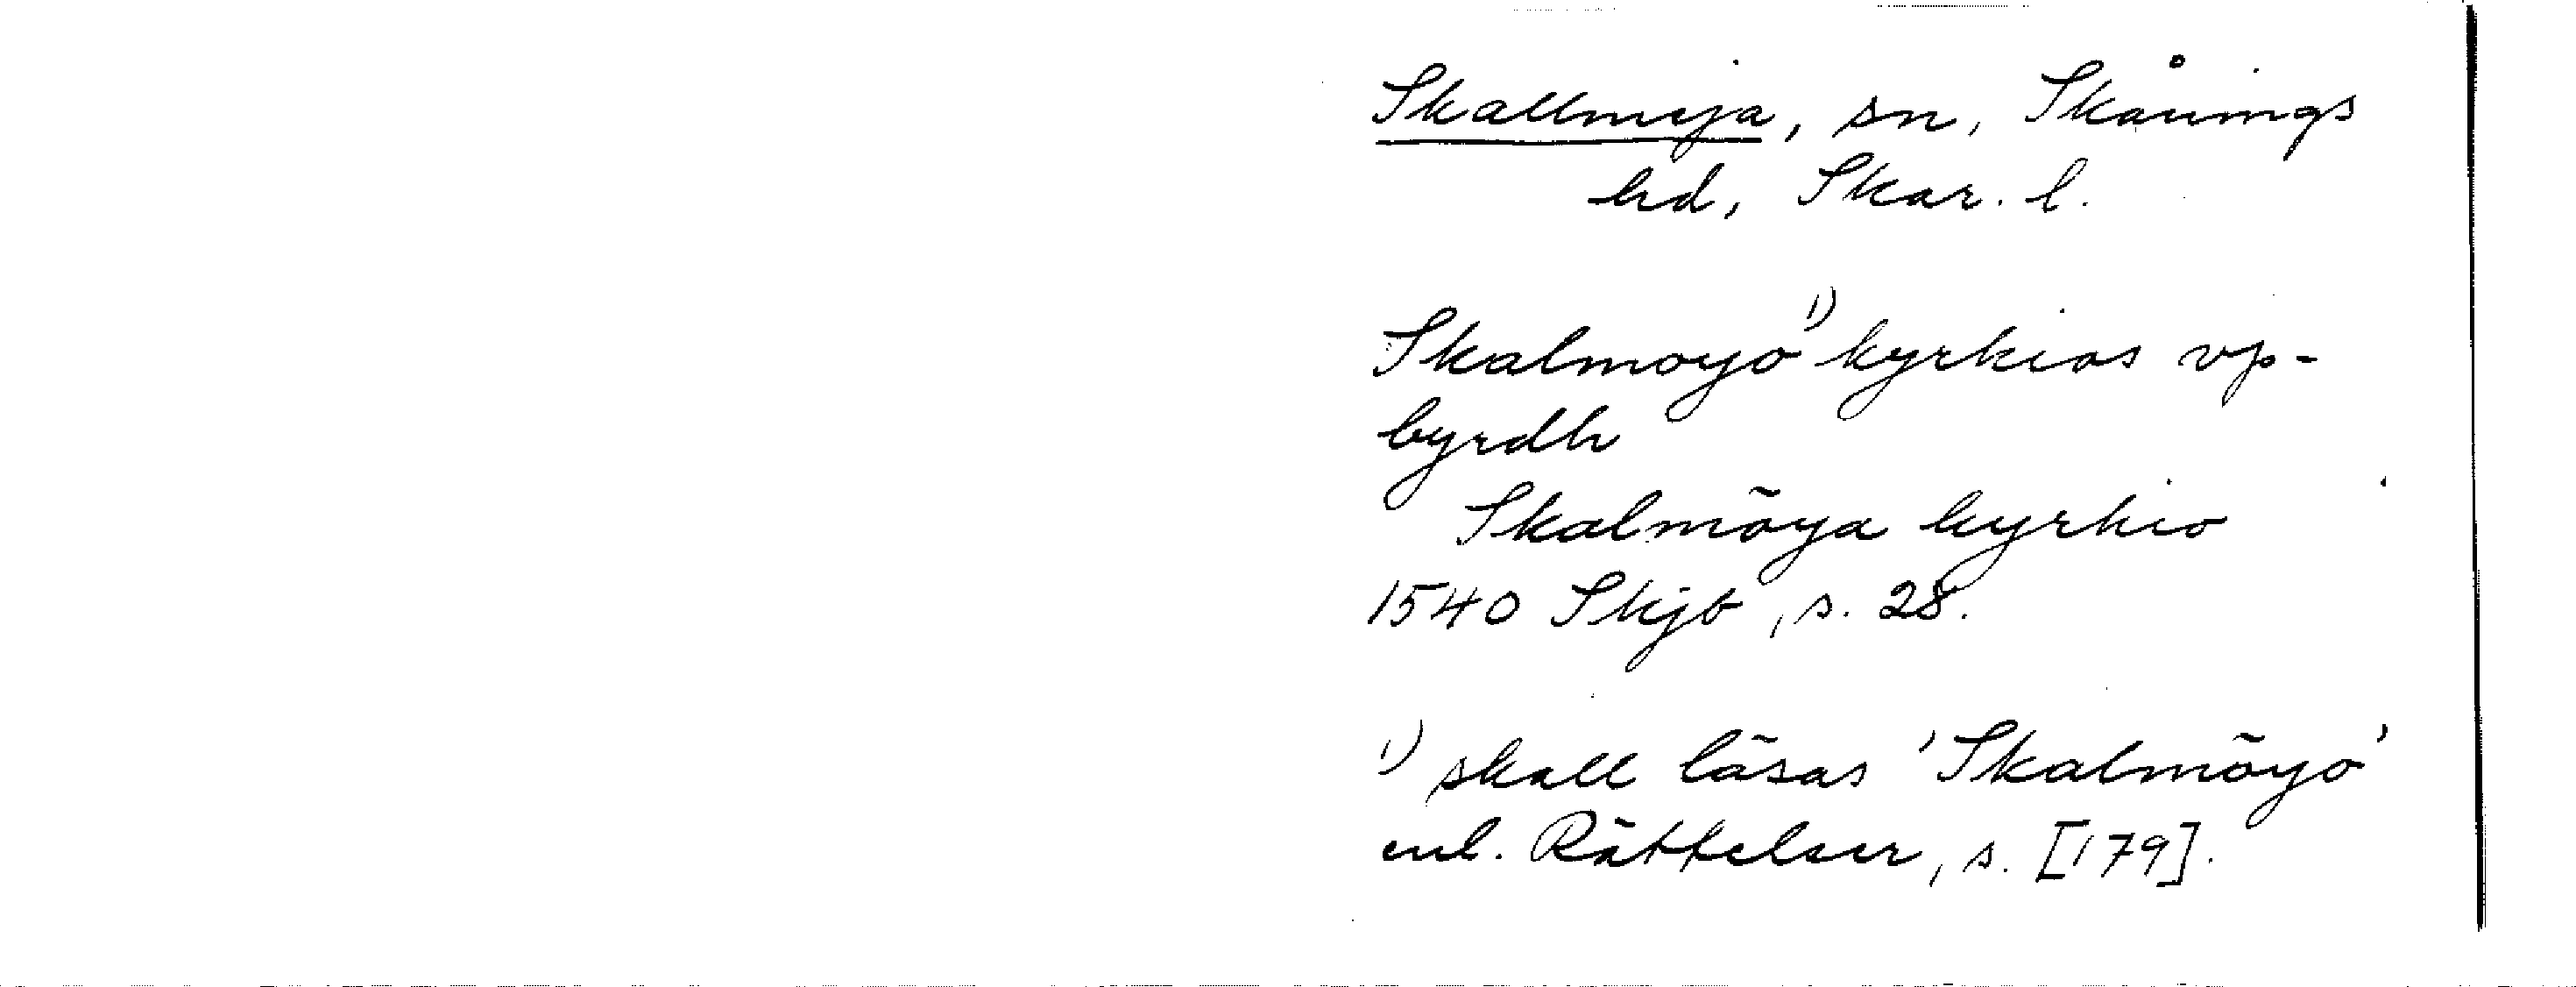 Skallmeja, sn, Skånings
hd, Skar. l.
Skalmoyo¹⁾ kyrkios vp-
byrdh
Skalmöya kyrkio
1540 Skjb, s. 28.
¹⁾ skall läsas 'Skalmöyo'
enl. Rättelser, s. [179].